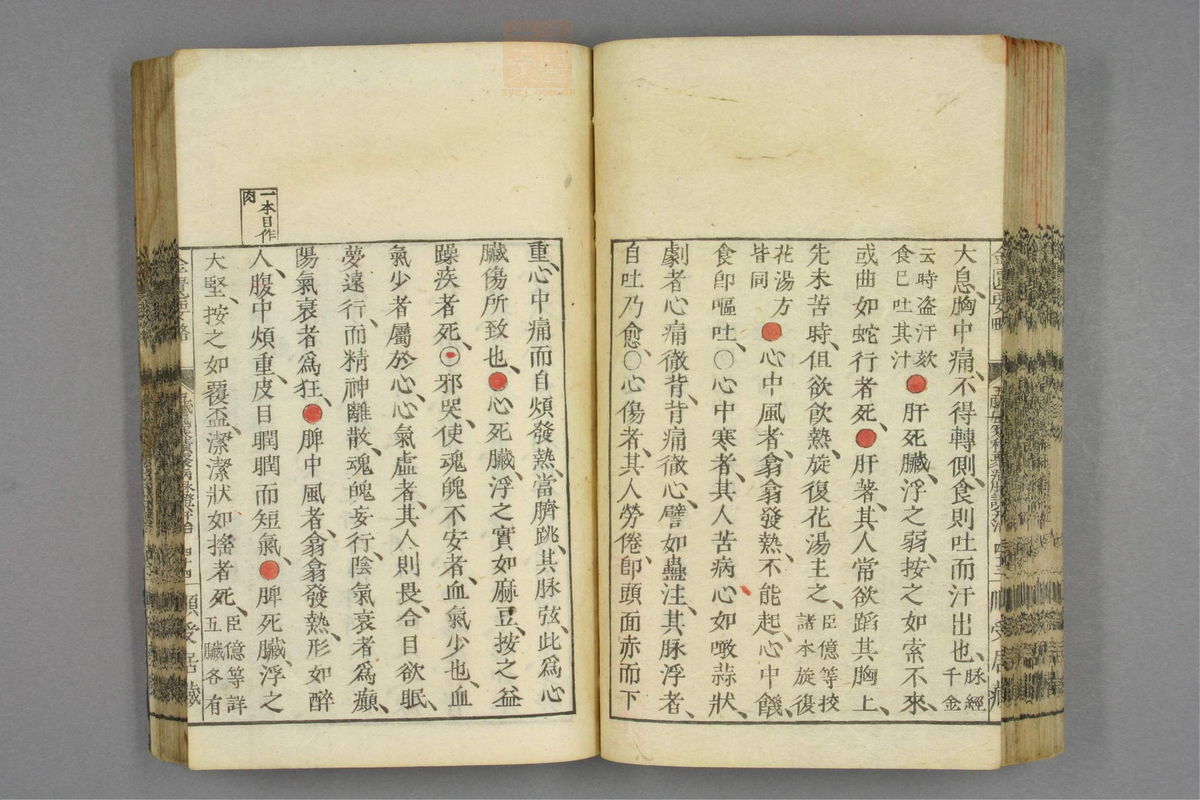 大息、胸中痛、不得轉側、食則吐而汗出也、脉經千金
云時盗汗欬食已吐其汁●肝死臟、浮之弱、按之如索不來、
或曲如蛇行者死、●肝著、其人常欲蹈其胸上、
先未苦時、但欲飲熱、旋復花湯主之、臣億等挍諸本旋復
花湯方皆同●心中風者、翕翕發熱、不能起、心中饑、
食卽嘔吐、○心中寒者、其人苦病心如噉蒜狀、
劇者心痛徹背、背痛徹心、譬如蠱注、其脉浮者、
自吐乃愈、○心傷者、其人勞倦、卽頭面赤而下
重、心中痛而自煩發熱、當臍跳、其脉弦、此爲心
臟傷所致也、●心死臟、浮之實如麻豆、按之益
躁疾者死、○邪哭、使魂魄不安者、血氣少也、血
氣少者屬於心、心氣虛者、其人則畏、合目欲眠、
夢遠行、而精神離散、魂魄妄行、陰氣衰者爲癲、
陽氣衰者爲狂、●脾中風者、翕翕發熱、形如醉
人、腹中煩重、皮目瞤瞤而短氣、●脾死臟、浮之
大堅、按之如覆盃、潔潔狀如搖者死、臣億等詳五臟各有
一本目作肉
四十四
順受居藏